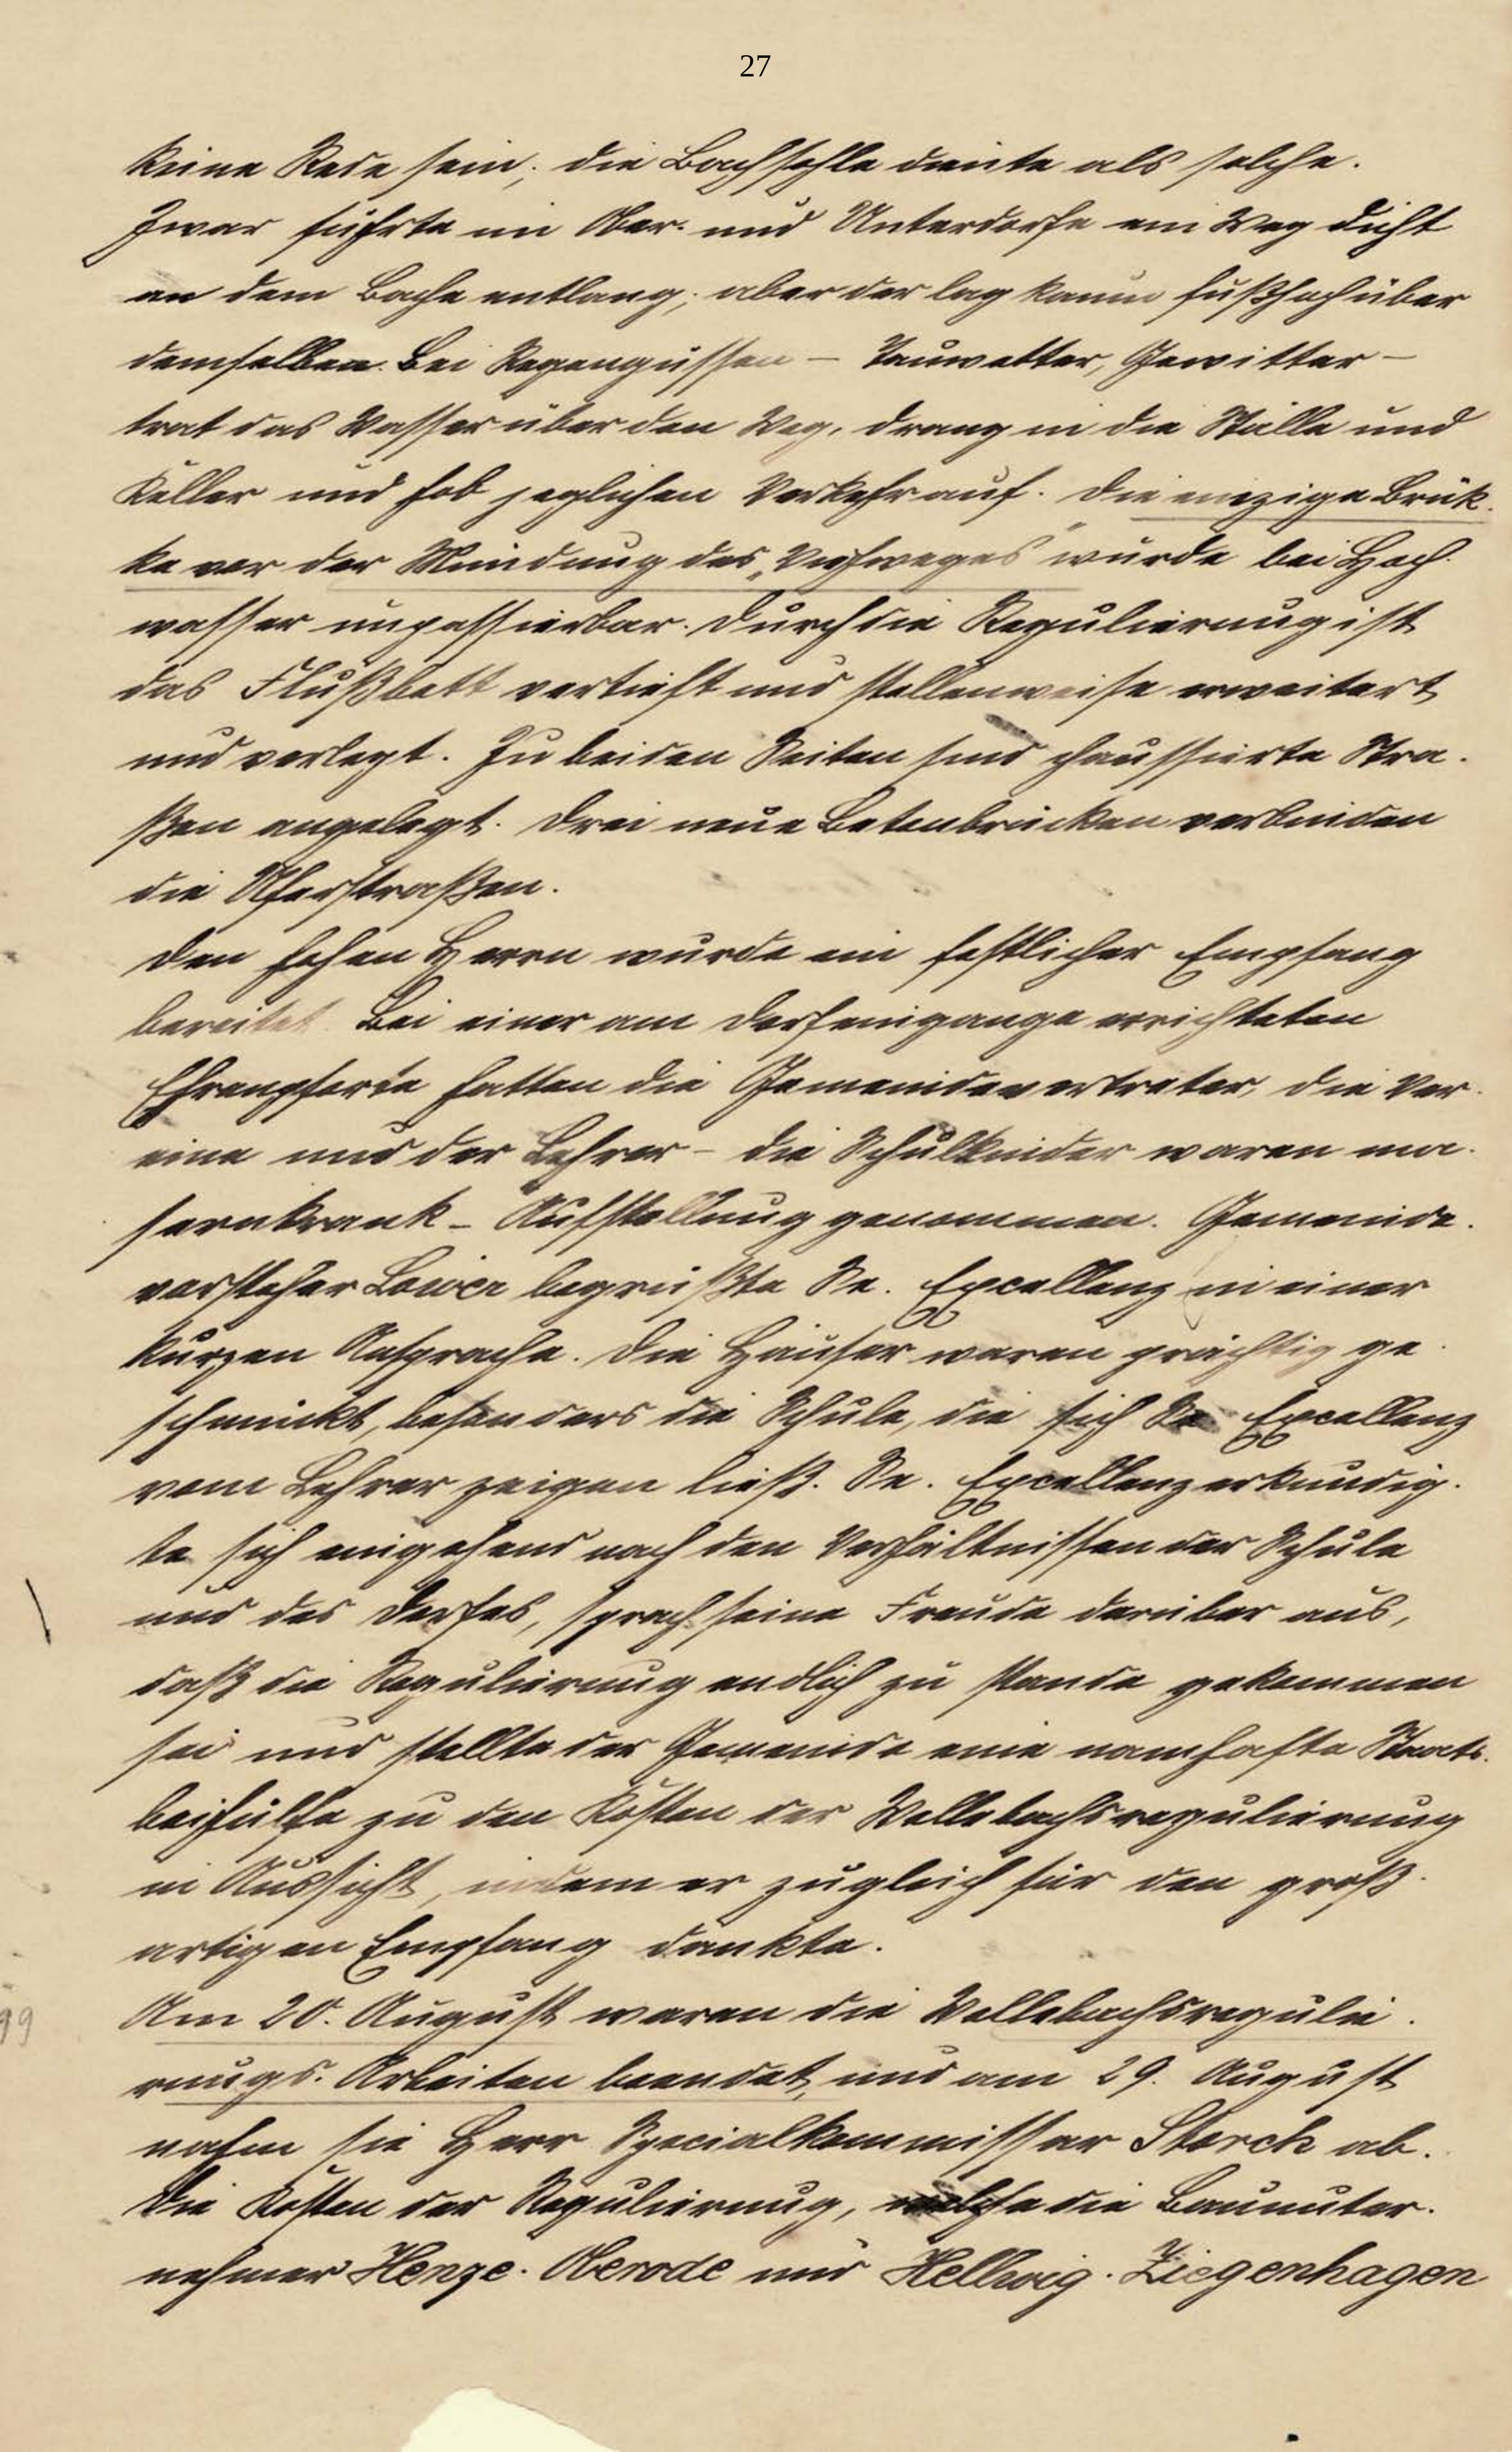 27
keine Rede sein; die Bachsohle diente als solche.
Zwar führte im Ober- und Unterdorfe ein Weg dicht
an dem Bache entlang; aber der lag kaum fußhoch über
demselben. Bei Regengüssen – Tauwetter, Gewitter –
trat das Wasser über den Weg, drang in die Ställe und
Keller und hob jeglichen Verkehr auf. Die einzige Brük-
ke vor der Mündung des „Viehweges" wurde bei Hoch-
wasser unpassierbar. Durch die Regulierung ist
das Flußbett vertieft und stellenweise erweitert
und verlegt. Zu beiden Seiten sind chaussierte Stra-
ßen angelegt. Drei neue Betonbrücken verbinden
die Uferstraßen.
Den hohen Herrn wurde ein festlicher Empfang
bereitet. Bei einer am Dorfeingange errichteten
Ehrenpforte hatten die Gemeindevertreter, die Ver-
eine und der Lehrer – die Schulkinder waren ma-
sernkrank – Aufstellung genommen. Gemeinde-
vorsteher begrüßte Se. Excellenz in einer
kurzen Ansprache. Die Häuser waren prächtig ge-
schmückt, besonders die Schule, die sich Se. Excellenz
vom Lehrer zeigen ließ. Se. Excellenz erkundig-
te sich eingehend nach den Verhältnissen der Schule
und des Dorfes, sprach seine Freude darüber aus,
daß die Regulierung endlich zu stande gekommen
sei und stellte der Gemeinde eine namhafte Staats-
beihülfe zu den Kosten der Wellebachsregulierung
in Aussicht, indem er zugleich für den groß-
artigen Empfang dankte.
99
Am 20. August waren die Wellebachsregulie-
rungs-Arbeiten beendet, und am 29. August
nahm sie Herr Specialkommissar Storch ab.
Die Kosten der Regulierung, welche die Bauunter-
nehmer Henze-Oberode und Hellwig-Ziegenhagen